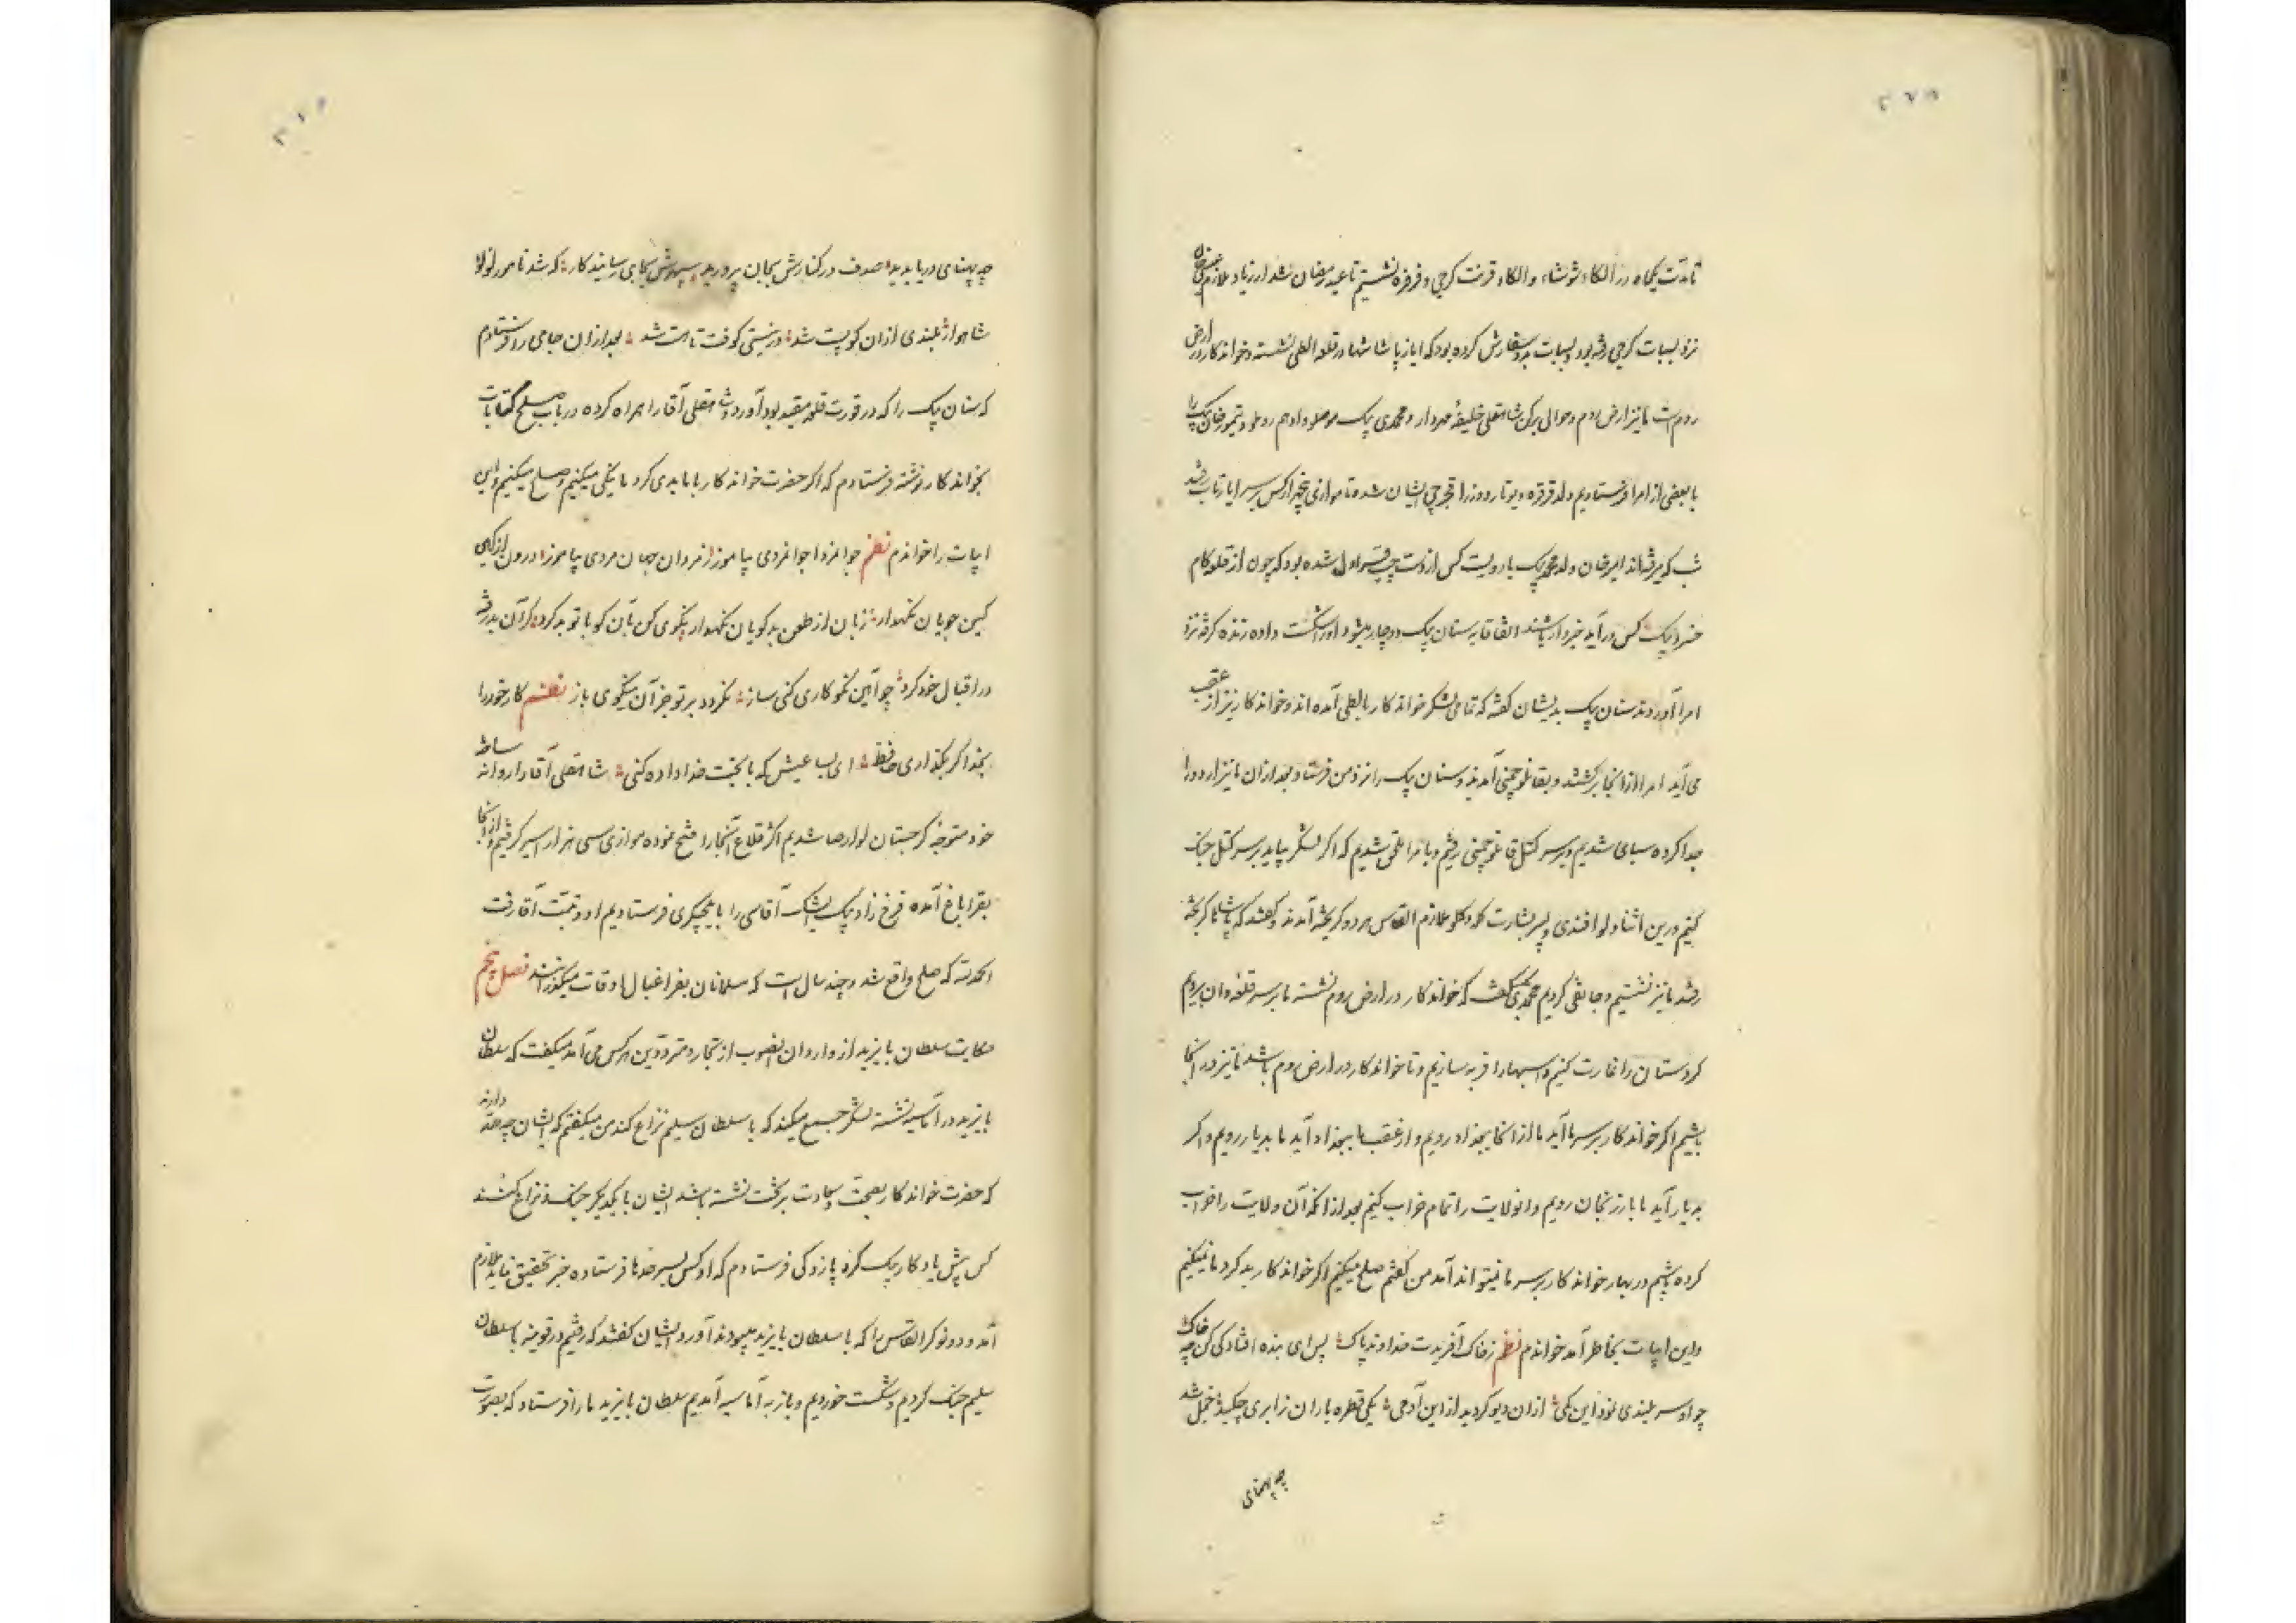 تا مدت یکماه در الکاء شوشاء والکاء قرنت کرجی و قرقره نشستیم تا عید رمضان شد ارزیاد ملازم
نزد لبسات کرجی رفته بود و لبسات بدو سفارش کرده بود که ایاز پاشا شما در قلعه الطی نشسته و خواندکار در ارض
روم است ما نیز ارض روم و حوالی شاهقلی خلیفهٔ مهردار و محمدی بیک موصلو و ادهم روملو و تیمور خان بیک را
با بعضی از امرا فرستادیم ولد قرقره و یوتار دوز را قجرچی ایشان شده تا موازی پنجهزار کس بر سر ایاز
شب کوبر فته اند امیر خان ولد محمد بیک با دویست کس از دست چپ قراول شده بود که چون از قلعه کام
خسرو بیک کس در آید خبردار باشند اتفاقا به سنان بیک دوچار میشود و او را شکست داده زنده گرفته نزد
امرا آوردند سنان بیک بدیشان گفته که تمامی لشکر خواندکار بالطی آمده اند و خواندکار نیز از عقب
می آید امرا از آنجا برگشتند و بقانلو چمنی آمدند و سنان بیک را نزد من فرستاد بعد از آن ما نیز اردو را
جدا کرده سپاهی شدیم و بر سر کتل قانلو چمنی رفتیم و با امرا ملحق شدیم که اگر لشکر بیاید بر سر کتل جنک
کنیم درین اثنا دلو افندی و پسر بشارت ملازم القاس هر دو گریخته آمدند و گفتند که پاشا کریخته
رفتند ما نیز نشستیم و جانقی کردیم محمدی بیک گفت که خواندکار در ارض روم نشسته ما بر سر قلعه وان برویم
کردستان را غارت کنیم و اسبها را فربه سازیم و تا خواندکار در ارض روم باشد ما نیز در آنجا
باشیم اگر خواندکار بر سر ما آید ما از آنجا ببغداد رویم و از عقب ما ببغداد آید ما بدیار رویم و اگر
بدیار آید ما بارزنجان رویم و انولایت را تمام خراب کنیم بعد از آنکه آن ولایت را خراب
کرده باشیم در بهار خواندکار بر سر ما نمیتواند آمد من گفتم صلح میکنیم اگر خواندکار بد کرد ما نمیکنیم
و این ابیات بخاطر آمد خواندم نظم ز خاک آفریدت خداوند پاک پس ای بنده افتادگی کن چو خاک
چو او سر بلندی نمود این کمی از آن دیو کردید از این آدمی یکی قطره باران ز ابری چکید خجل شد
چو پهنای
چو پهنای دریا بدید صدف در کنارش بجان پرورید سپهرش بجایی رسانید کار که شد نامور لولو
شاهوار بلندی از آن کو پست شد در نیستی کوفت تا هست شد بعد از آن جامی را فرستادم
که سنان بیک را که در قورت قلعه مقید بود آورد و شاهقلی آقا را همراه کرده در باب صلح کتابات
بخواندکار نوشته فرستادم که اگر حضرت خواندکار با ما بدی کرد ما نیکی میکنیم و صلح میکنیم و این
ابیات را خواندم نظم جوانمردا جوانمردی بیاموز از مردان جهان مردی بیاموز درون از کین
کین جویان نگهدار زبان از طعن بدگویان نگهدار نکویی کن بآن کو با تو بد کرد کز آن بد رخنه
در اقبال خود کرد چو آیین نکوکاری کنی ساز نگردد بر تو جز آن نیکویی باز نظم کار خود را
بخدا گر بگذاری حافظ ای بسا عیش که با بخت خداداده کنی شاهقلی آقا را روانه ساخته
خود متوجه گرجستان لوارصا شدیم اکثر قلاع آنجا را فتح نموده موازی سی هزار اسیر گرفتیم و از آنجا
بقراباغ آمده فرخ زاد بیک ایشیک آقاسی را بایلچیگری فرستادیم او و تبت آقا رفت
الحمد لله که صلح واقع شد و چند سال است که مسلمانان بفراغبال اوقات میگذرانند فصل پنجم
حکایت سلطان بایزید از واردان انصوب از تجار و مترددین هر کس می آمد میگفت که سلطان
بایزید در آماسیه نشسته لشکر جمع میکند که با سلطان سلیم نزاع کند من میگفتم که ایشان چه حد دارند
که حضرت خواندکار بصحت و سعادت بر تخت نشسته باشد ایشان با یکدیگر جنک و نزاع کنند
کس پیش یادکار بیک کرد پازوکی فرستادم که او کس بسرحدها فرستاده خبر تحقیق نماید ملازم
آمد و دو نوکر القاس را که با سلطان بایزید میبودند آورد ایشان گفتند که رفتیم در قونیه با سلطان
سلیم جنک کردیم و شکست خوردیم و باز به آماسیه آمدیم سلطان بایزید ما را فرستاد که بصورت